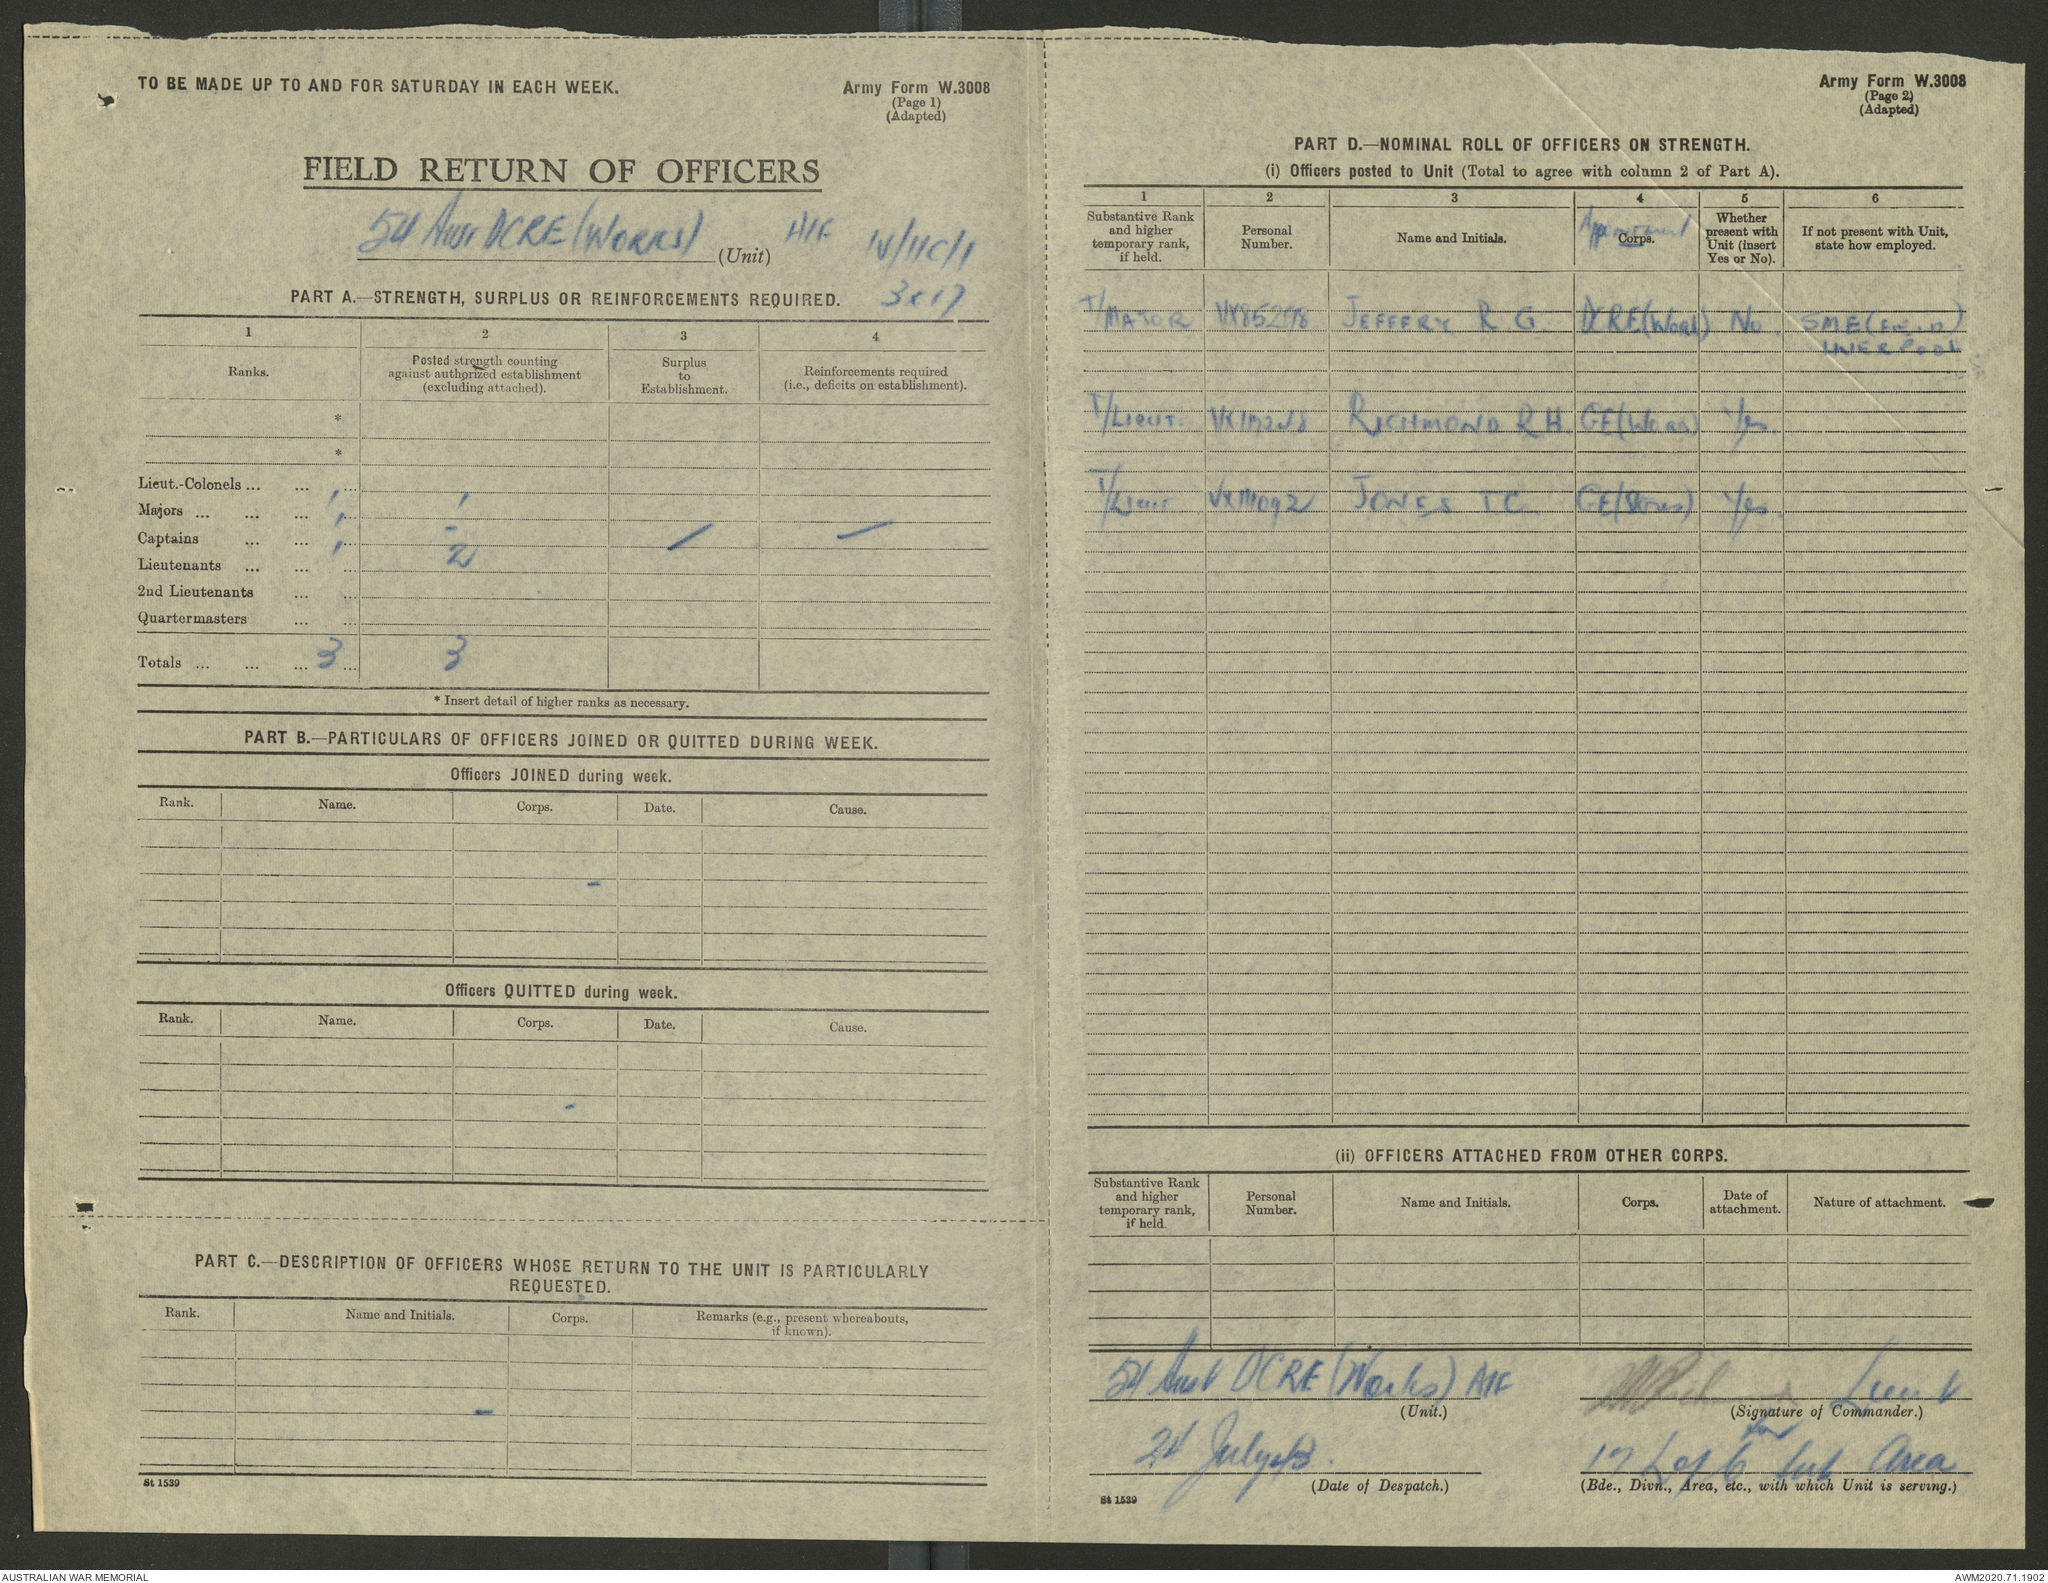 TO BE MADE UP TO AND FOR SATURDAY IN EACH WEEK.
Army Form W.3008
(Page 1)
(Adapted)
FIELD RETURN OF OFFICERS
54 Aust DCRE (Works) AIF
(Unit)
IV/11C/1
3 x 17
PART A.—STRENGTH, SURPLUS OR REINFORCEMENTS REQUIRED.
1 2 3 4
Ranks.
Posted strength counting
against authorized establishment
(excluding attached).
Surplus
to
Establishment.
Reinforcements required
(i.e., deficits on establishment).
*
*
Lieut.-Colonels ... ... ...
Majors ... ... ... 1 1
Captains ... ... ... 1 -
Lieutenants ... ... ... 1 2
2nd Lieutenants ... ...
Quartermasters ... ...
Totals ... ... ... 3 ... 3
* Insert detail of higher ranks as necessary.
PART B.—PARTICULARS OF OFFICERS JOINED OR QUITTED DURING WEEK.
Officers JOINED during week.
Rank. Name. Corps. Date. Cause.
-
Officers QUITTED during week.
Rank. Name. Corps. Date. Cause.
-
PART C.—DESCRIPTION OF OFFICERS WHOSE RETURN TO THE UNIT IS PARTICULARLY
REQUESTED.
Rank. Name and Initials. Corps. Remarks (e.g., present whereabouts,
if known).
-
St 1539
Army Form W.3008
(Page 2)
(Adapted)
PART D.—NOMINAL ROLL OF OFFICERS ON STRENGTH.
(i) Officers posted to Unit (Total to agree with column 2 of Part A).
1 2 3 4 5 6
Substantive Rank
and higher
temporary rank,
if held.
Personal
Number.
Name and Initials.
Appointment
Corps.
Whether
present with
Unit (insert
Yes or No).
If not present with Unit,
state how employed.
T/MAJOR VX85298 JEFFERY R G. DCRE (Works) No. SME
LIVERPOOL.
T/LIEUT. RICHMOND R H. GE (Works) Yes.
T/Lieut VX111092 JONES T C. GE (Stores) Yes.
(ii) OFFICERS ATTACHED FROM OTHER CORPS.
Substantive Rank
and higher
temporary rank,
if held.
Personal
Number.
Name and Initials.
Corps.
Date of
attachment.
Nature of attachment.
54 Aust DCRE (Works) AIF
(Unit.)
Lieut
(Signature of Commander.)
for
24 July 43.
(Date of Despatch.)
17 L of C Sub Area
(Bde., Divn., Area, etc., with which Unit is serving.)
St 1539
AUSTRALIAN WAR MEMORIAL
AWM2020.71.1902